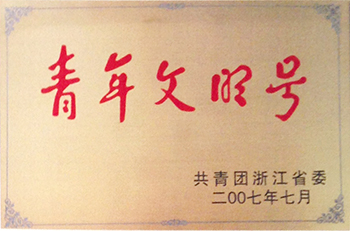 青年文明号
共青团浙江省委
二00七年七月